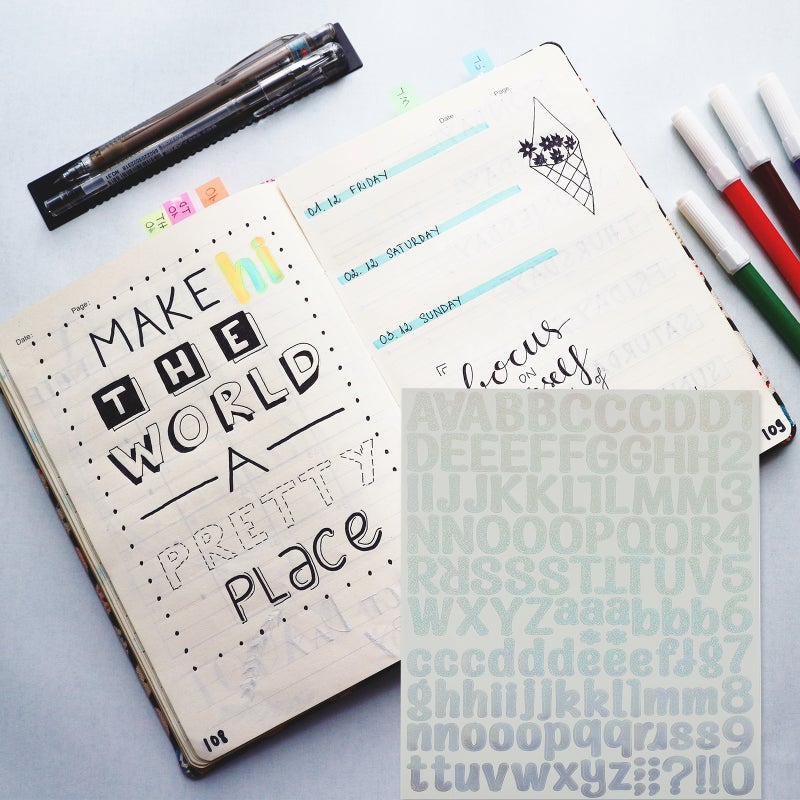 Date:
Page:
MAKE hi
THE
WORLD
A
PRETTY
PLACE
108
Date
Page
01.12 FRIDAY
02.12 SATURDAY
03.12 SUNDAY
focus
ON
of
109
AAABBCCCDD1
DEEEFFGGHH2
IIJJKKLLLMM3
NNOOOPQOR4
RRSSSSTTTUV5
WXYZZaaabbb6
cccdddeeeffg7
ghhiijjkkllmm8
nnooopqqrrss9
ttuvwxyz;;?!!0